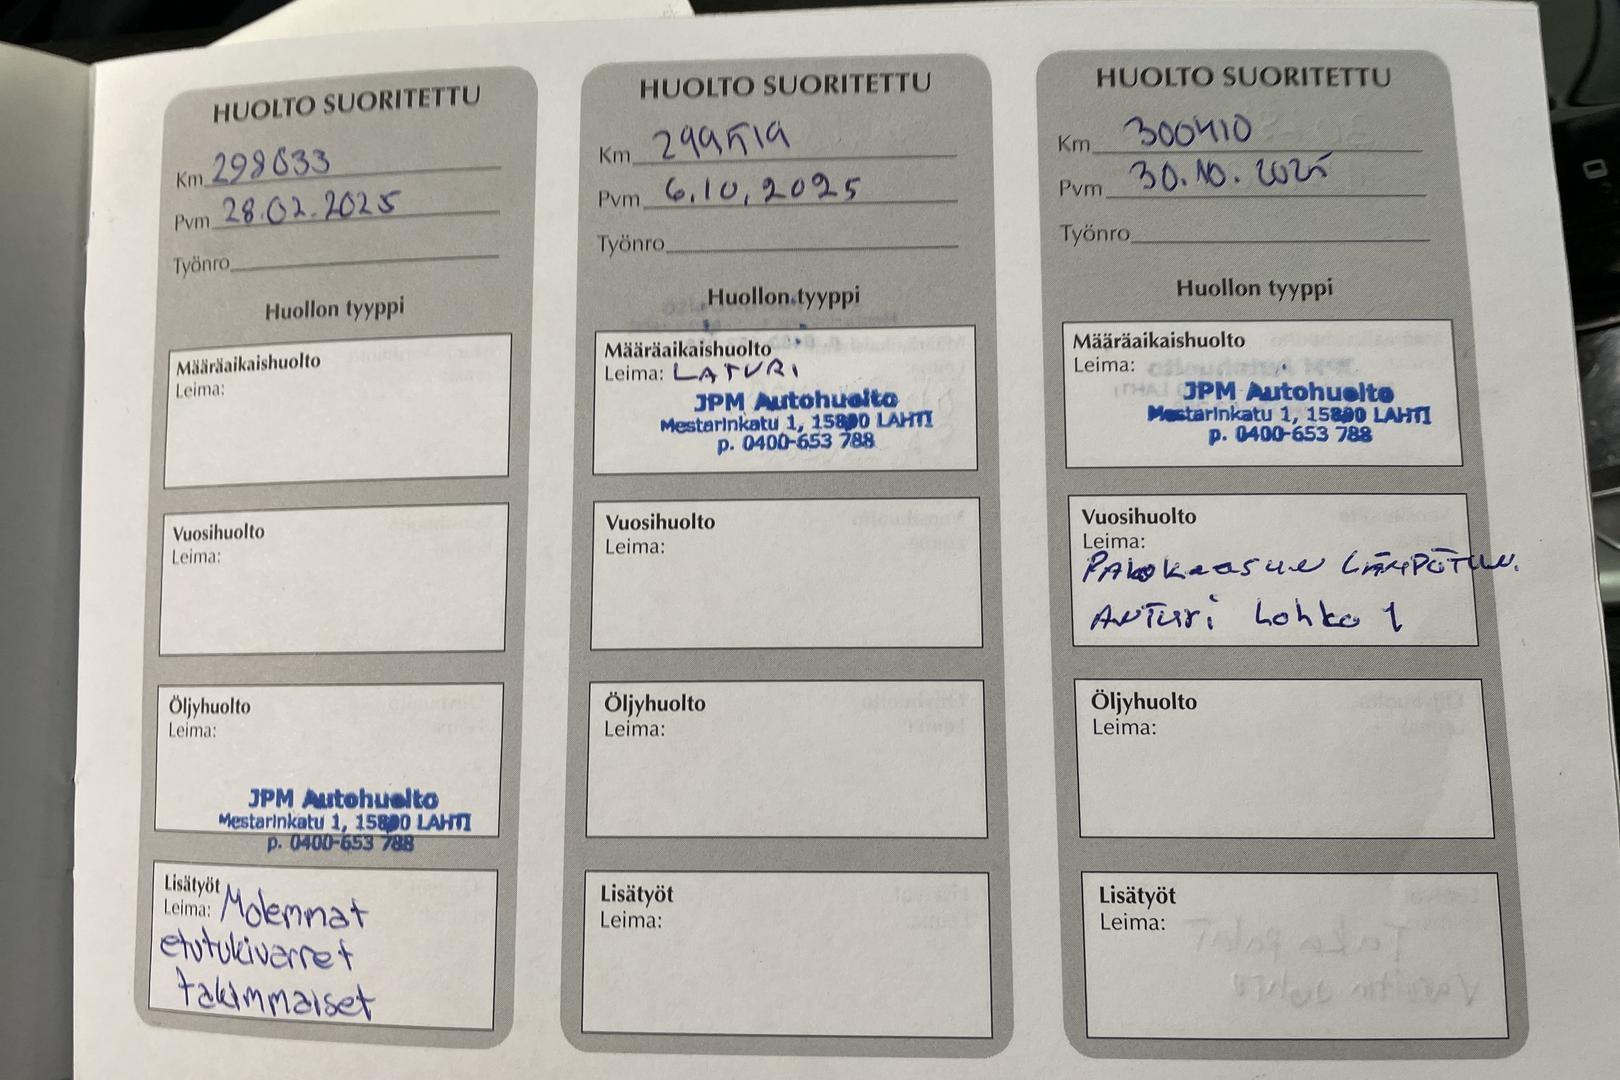 HUOLTO SUORITETTU
Km 298633
Pvm 28.02.2025
Työnro
Huollon tyyppi
Määräaikaishuolto
Leima:
Vuosihuolto
Leima:
Öljyhuolto
Leima:
JPM Autohuolto
Mestarinkatu 1, 15800 LAHTI
p. 0400-653 788
Lisätyöt
Leima: Molemmat
etutukivarret
takimmaiset
HUOLTO SUORITETTU
Km
Pvm 6.10.2025
Työnro
Huollon tyyppi
Määräaikaishuolto
Leima: LATURI
JPM Autohuolto
Mestarinkatu 1, 15800 LAHTI
p. 0400-653 788
Vuosihuolto
Leima:
Öljyhuolto
Leima:
Lisätyöt
Leima:
HUOLTO SUORITETTU
Km 300410
Pvm 30.10.2025
Työnro
Huollon tyyppi
Määräaikaishuolto
Leima:
JPM Autohuolto
Mestarinkatu 1, 15800 LAHTI
p. 0400-653 788
Vuosihuolto
Leima:
PAKOKAASUN LÄMPÖTUN.
ANTURI Lohko 1
Öljyhuolto
Leima:
Lisätyöt
Leima: